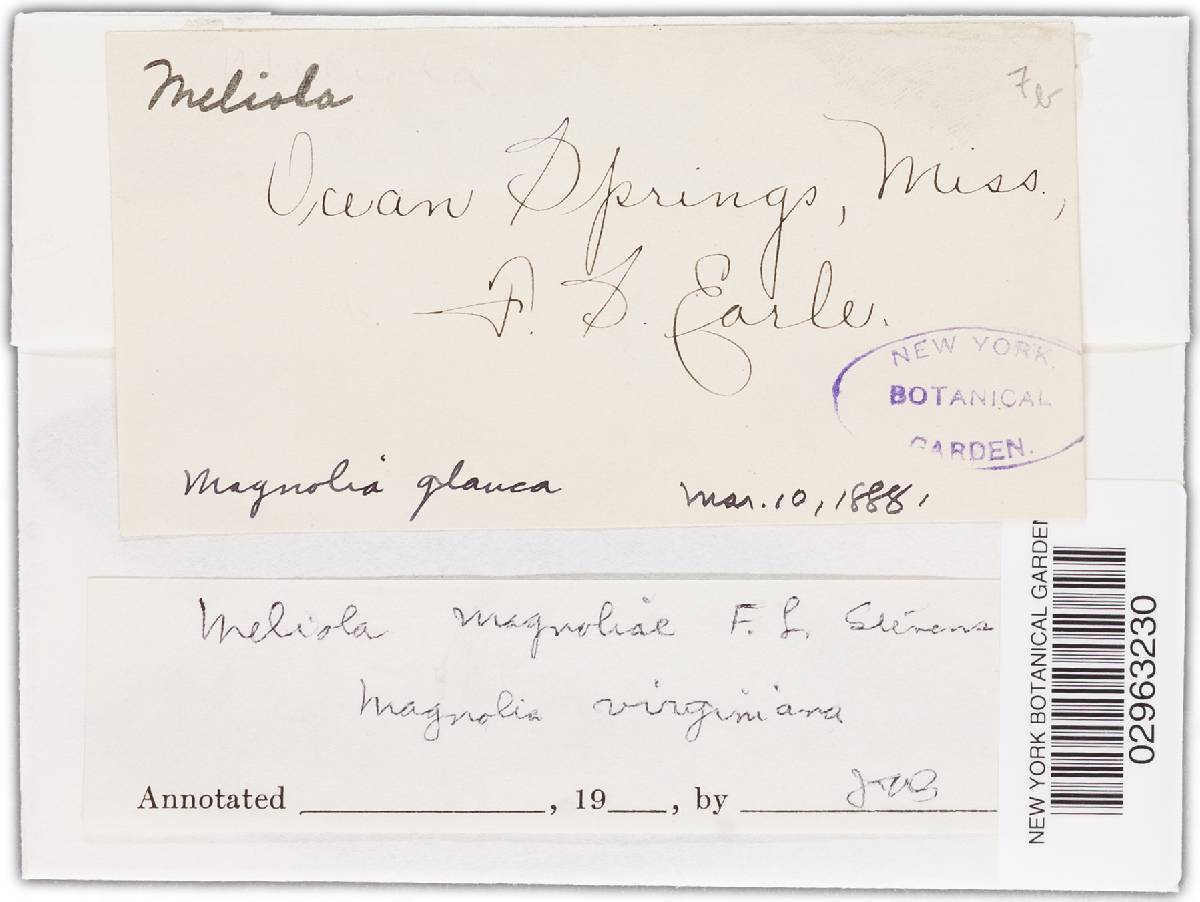 Meliola
Ocean Springs, Miss.,
F. S. Earle.
NEW YORK
BOTANICAL
GARDEN.
Magnolia glauca Mar. 10, 1888.
Meliola magnoliae F. L. Stevens
Magnolia virginiana
Annotated ____________, 19___, by ____________
NEW YORK BOTANICAL GARDEN
02963230